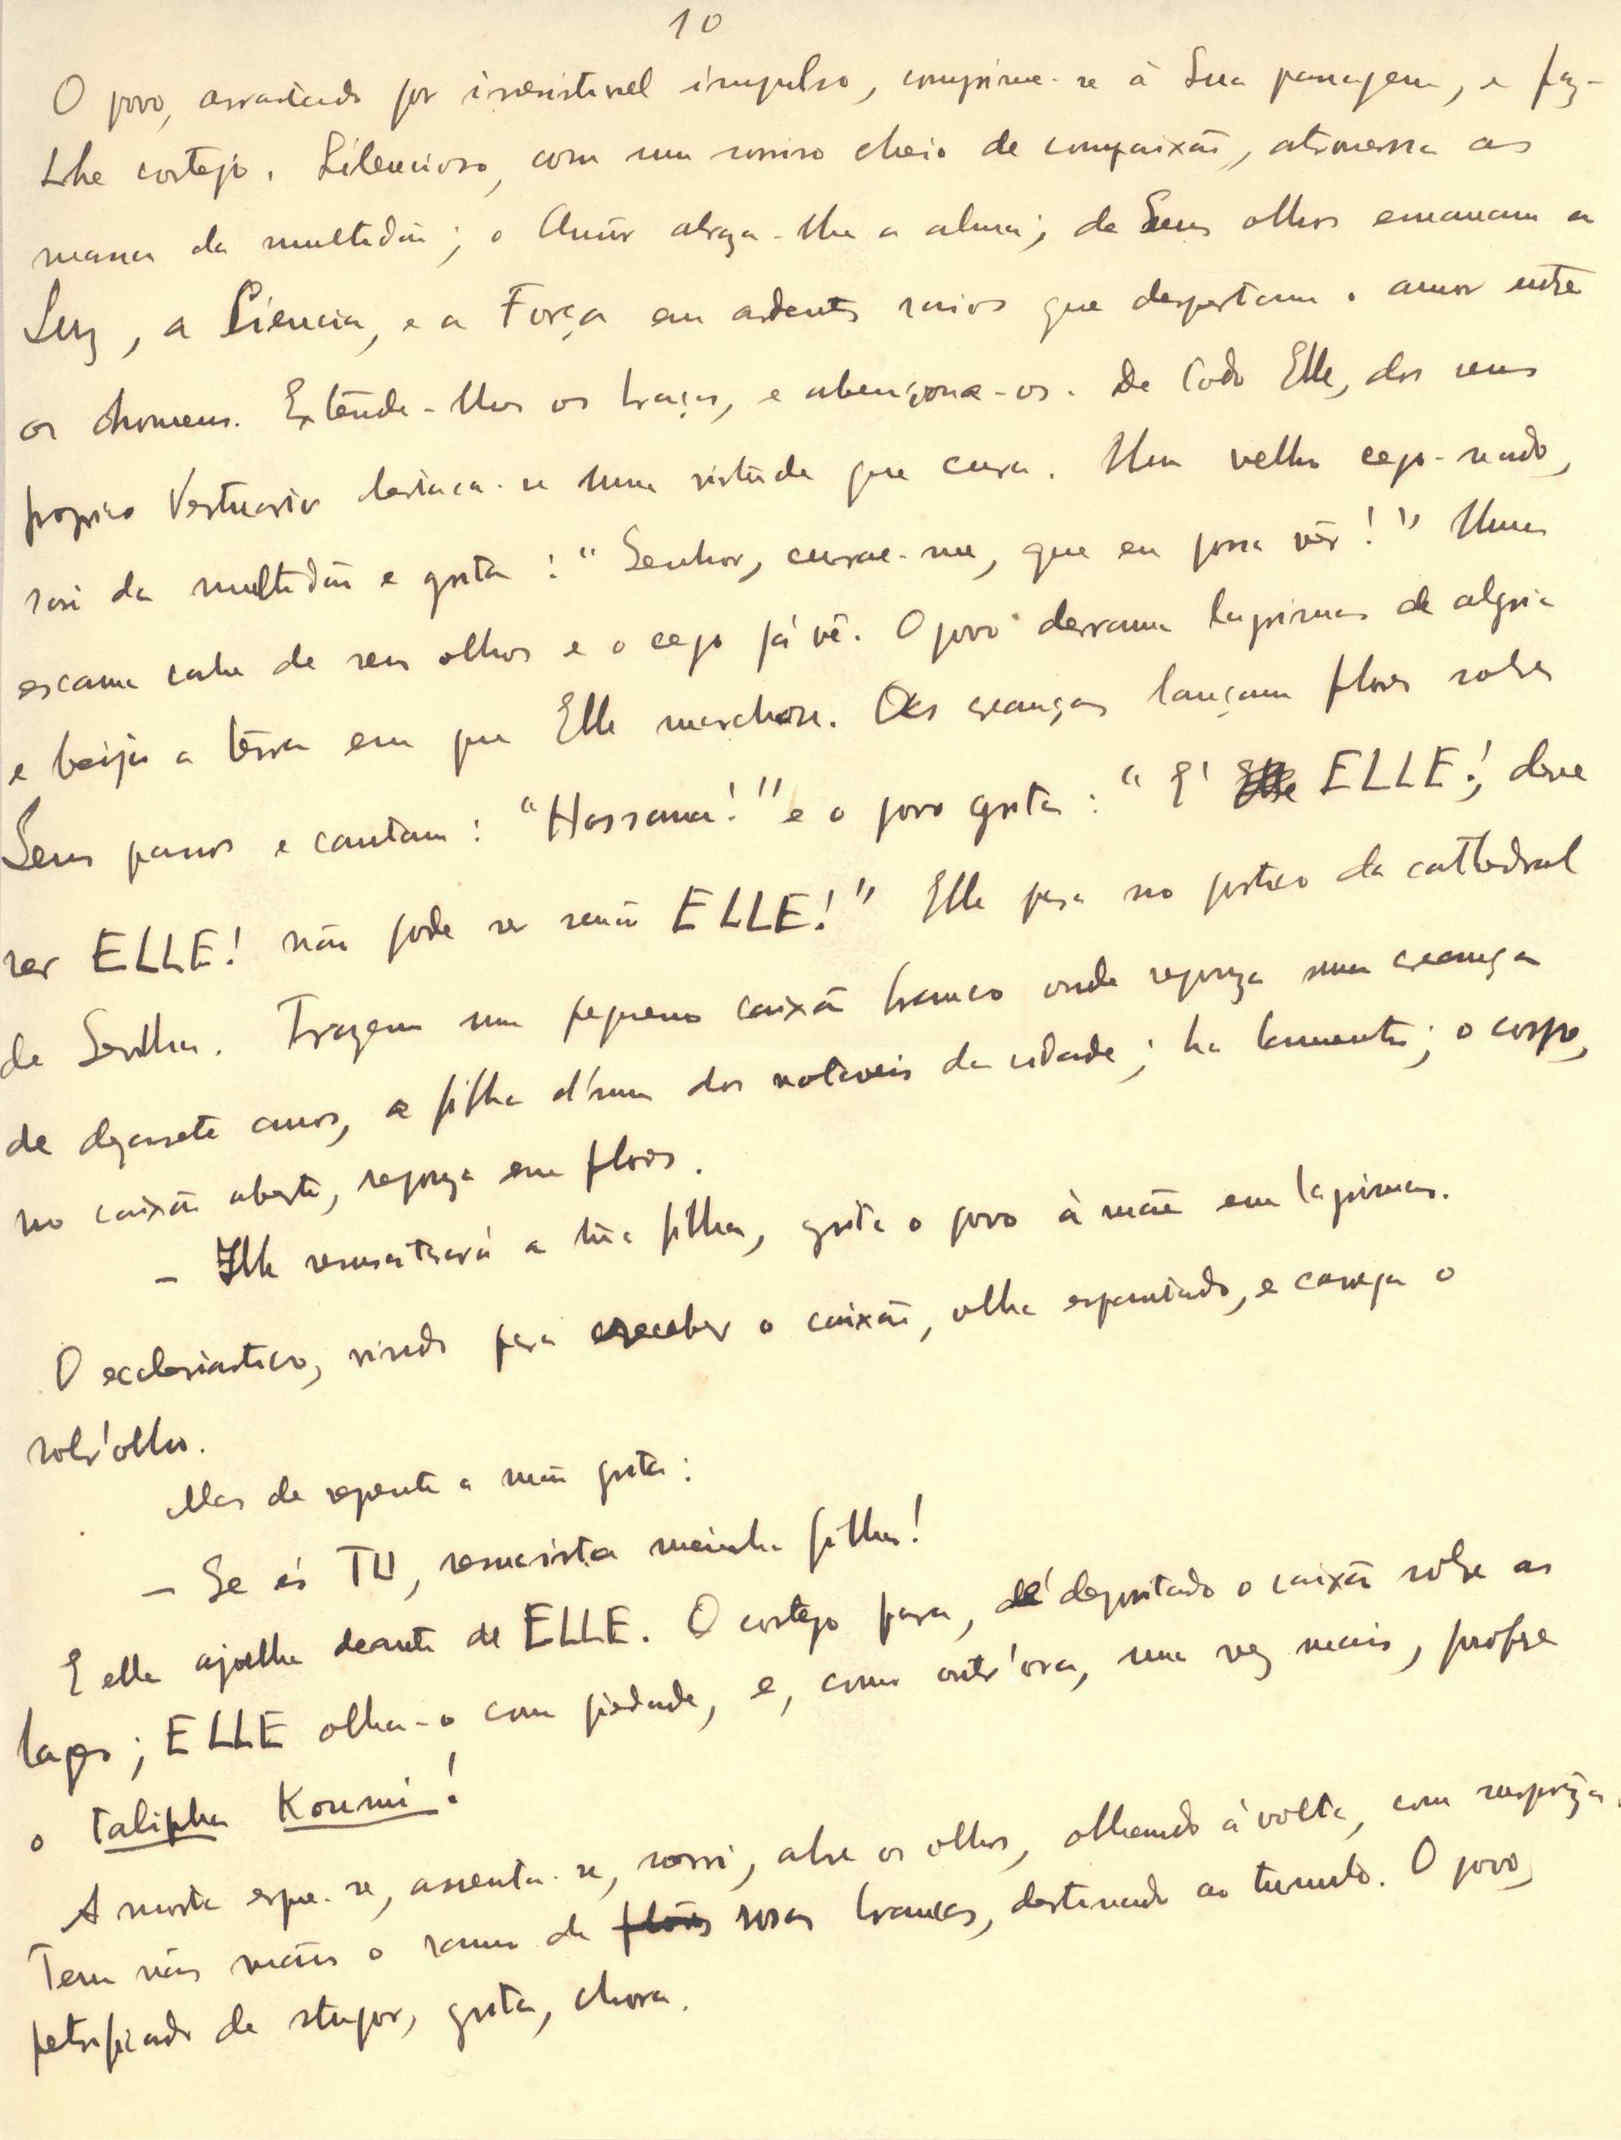 10
O povo, arrastado por irresistivel impulso, comprime-se à Sua passagem, e faz-
Lhe cortejo. Silencioso, com um sorriso cheio de compaixão, atravessa as
massa da multidão; o Amôr abraza-lhe a alma; de Seus olhos emanam a
Luz, a Ciencia, e a Força em ardentes raios que despertam o amor entre
os homens. Extende-lhes os braços, e abençoa-os. De todo Elle, dos seus
proprios Vestuarios destaca-se uma virtude que cura. Um velho cego-nado,
sai da multidão e grita: "Senhor, curae-me, que eu possa vêr!" Uma
escama cahe de seus olhos e o cego já vê. O povo derrama lagrimas de alegria
e beija a terra em que Elle marchou. As creanças lançam flores sobre
Seus passos e cantam: "Hossana!" e o povo grita: "E' ELLE!, deve
ser ELLE! não pode ser senão ELLE!" Elle para no portico da cathedral
de Sevilha. Trazem um pequeno caixão branco onde repouza uma creança
de dezassete annos, a filha d'um dos notaveis da cidade; ha lamentos; o corpo,
no caixão aberto, repouza em flores.
- Elle ressuscitará a tua filha, grita o povo à mãe em lagrimas.
O ecclesiastico, vindo para receber o caixão, olha espantado, e carrega o
sobr'olho.
Mas de repente a mãe grita:
- Se és TU, ressuscita minha filha!
E ella ajoelha deante de ELLE. O cortejo para, é depositado o caixão sobre as
lages; ELLE olha-o com piedade, e, como outr'ora, uma vez mais, profere
o Talipha Koumi!
A morta ergue-se, assenta-se, sorri, abre os olhos, olhando à volta, com surpreza.
Tem nas mãos o ramo de rosas brancas, destinado ao tumulo. O povo,
petrificado de stupor, grita, chora.